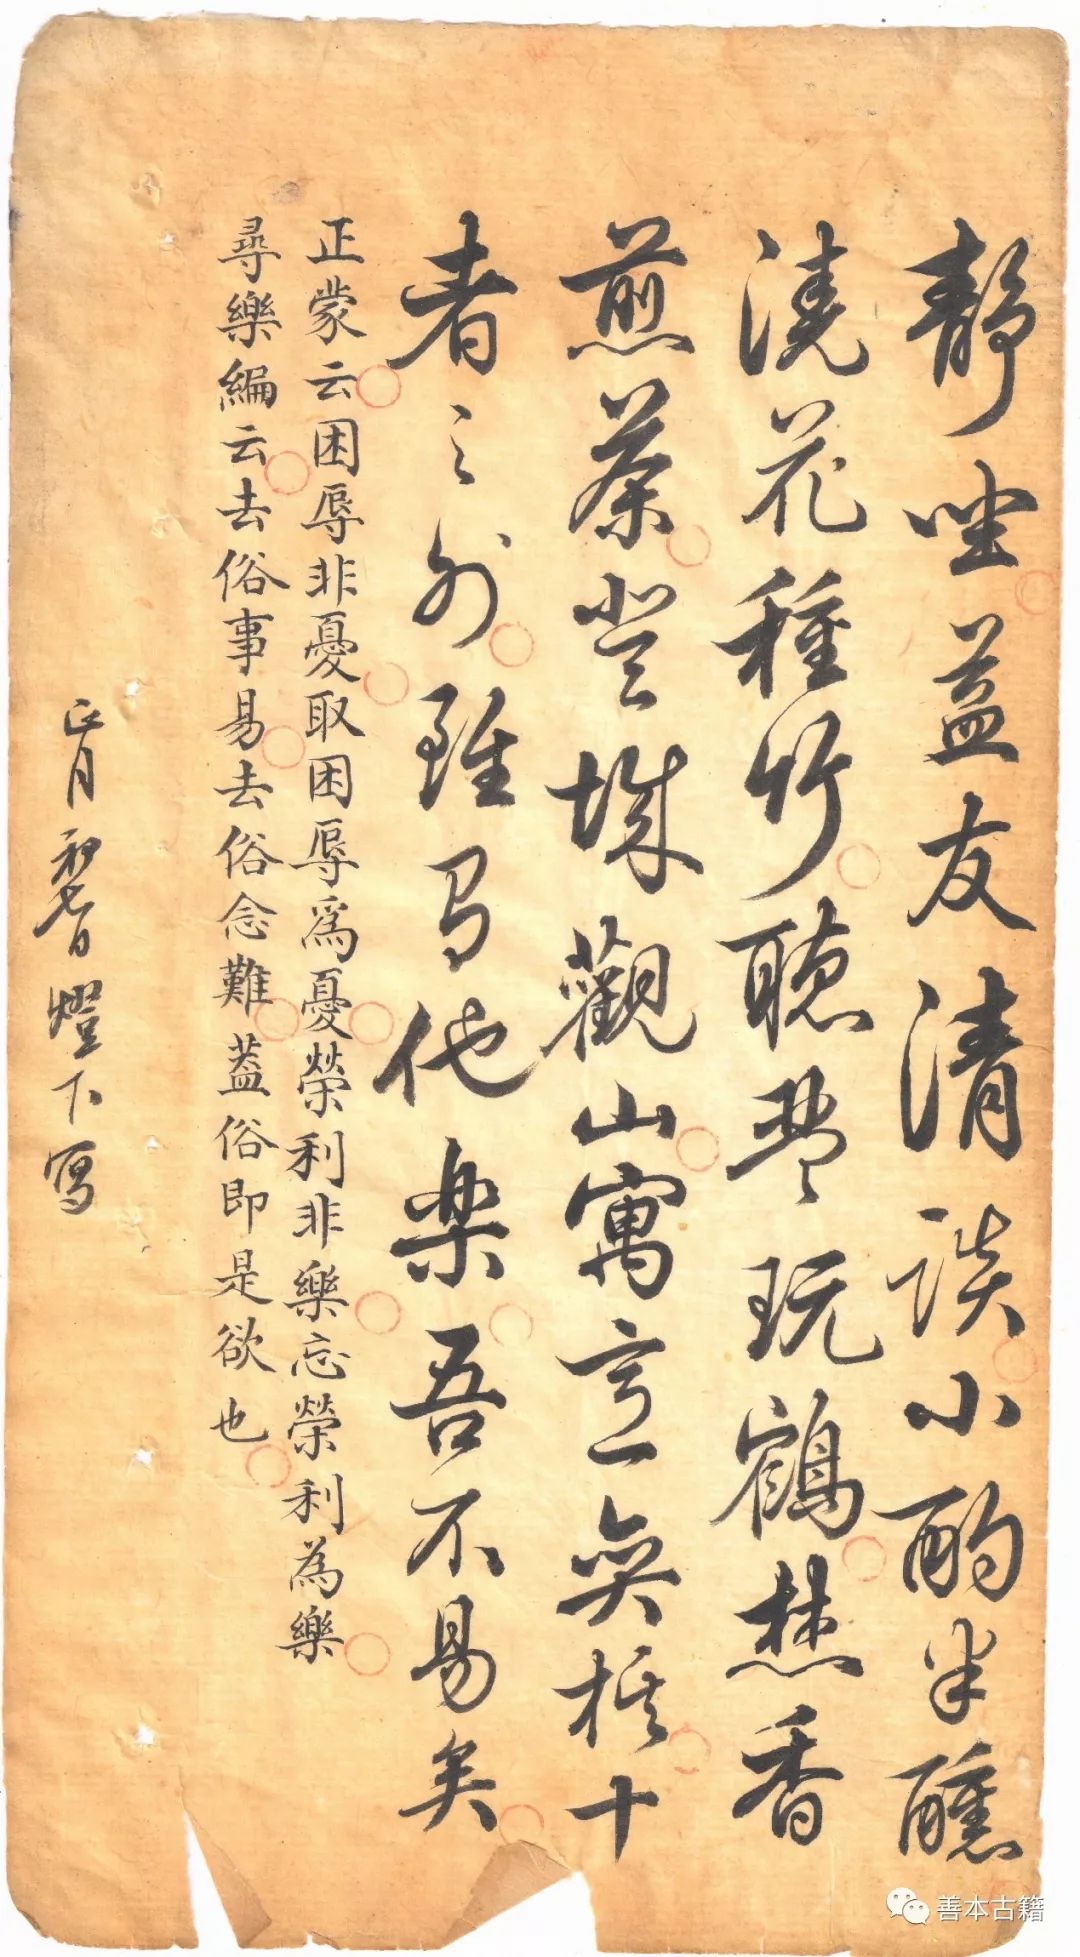 靜坐益友清談小酌半醺
澆花種竹聽琴玩鶴焚香
煎茶登城觀山寓意奕棋十
者之外雖有他樂吾不易矣
正蒙云困辱非憂取困辱爲憂榮利非樂忘榮利為樂
尋樂編云去俗事易去俗念難蓋俗即是欲也
正月初七日燈下寫
善本古籍